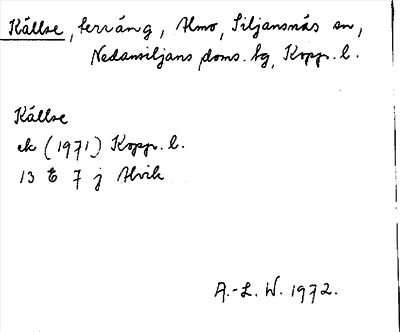 Källse, terräng, Almo, Siljansnäs sn,
Nedansiljans doms. tg, Kopp. l.
Källse
ek (1971) Kopp. l.
13 E 7 j Alvik
A.-L. W. 1972.